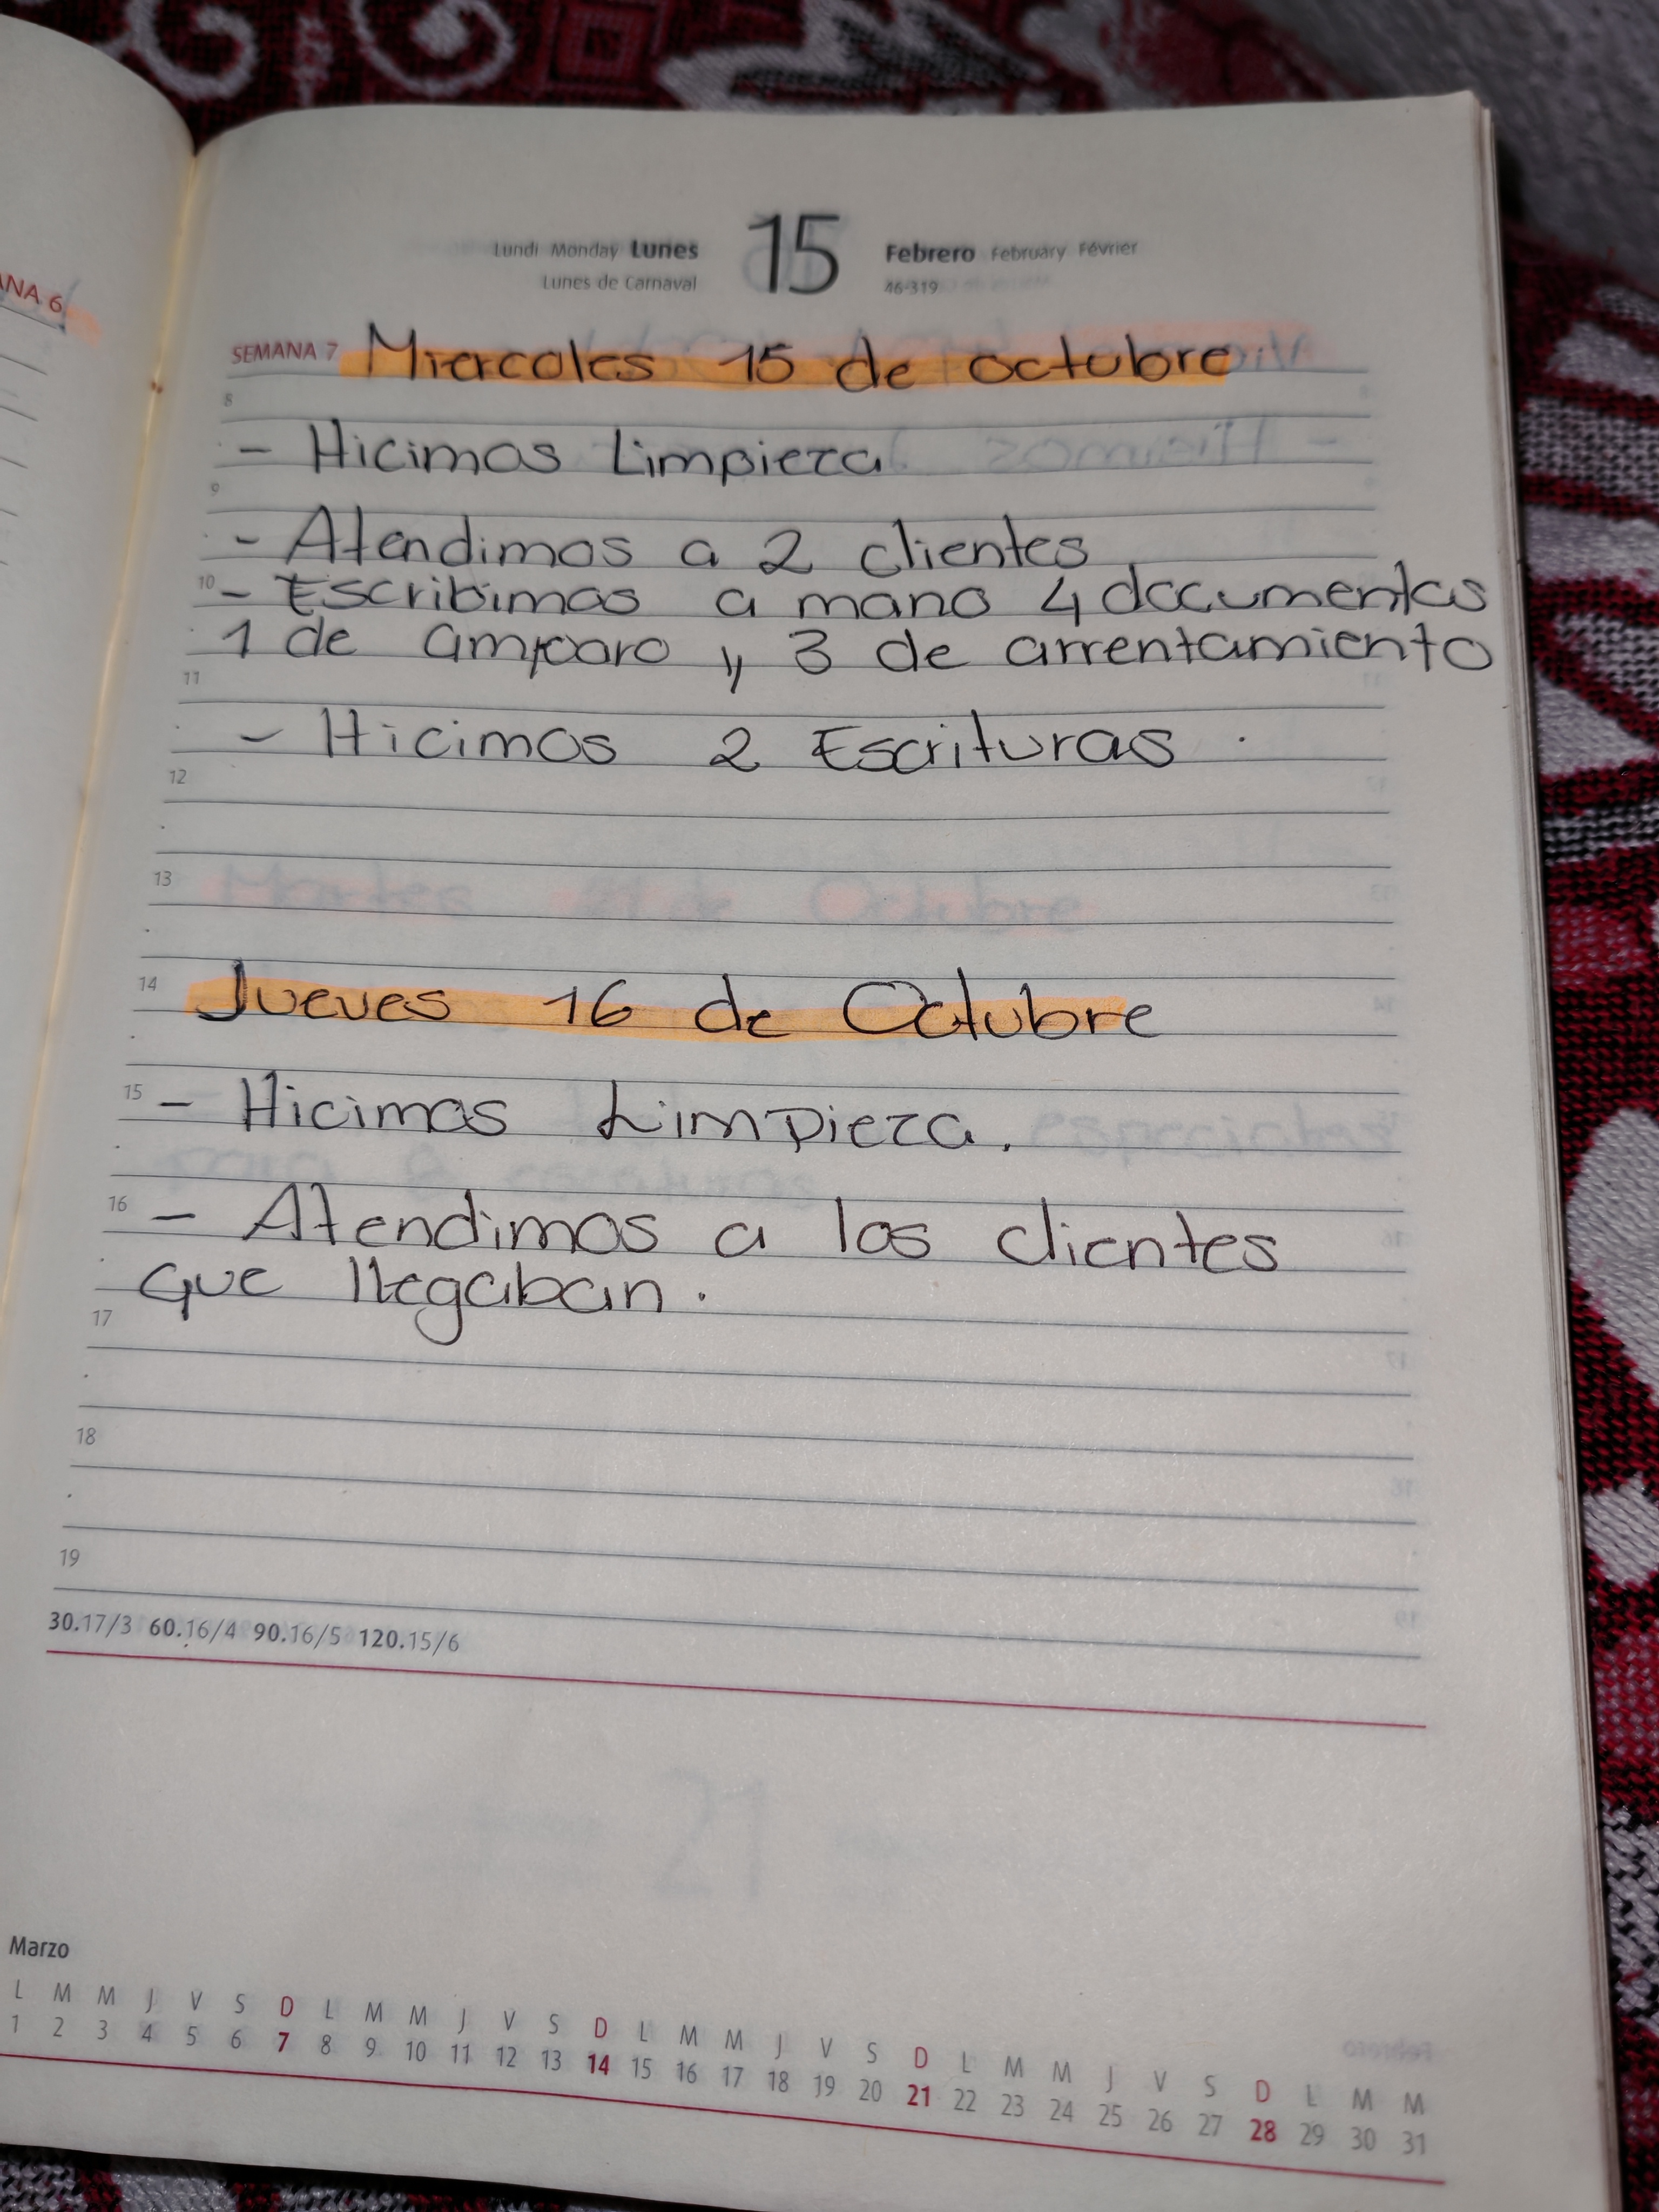 Lundi Monday Lunes 15 Febrero February Février
Lunes de Carnaval 46-319
ANA 6
SEMANA 7 Miercoles 15 de octubre
8
- Hicimos Limpieza
9
- Atendimos a 2 clientes
10 - Escribimos a mano 4 documentos
1 de amparo y 3 de arrentamiento
11
- Hicimos 2 Escrituras.
12
13
14 Jueves 16 de Octubre
15 - Hicimos Limpieza.
16 - Atendimos a los clientes
que llegaban.
17
18
19
30.17/3 60.16/4 90.16/5 120.15/6
Marzo
L M M J V S D L M M J V S D L M M J V S D L M M J V S D L M M
1 2 3 4 5 6 7 8 9 10 11 12 13 14 15 16 17 18 19 20 21 22 23 24 25 26 27 28 29 30 31